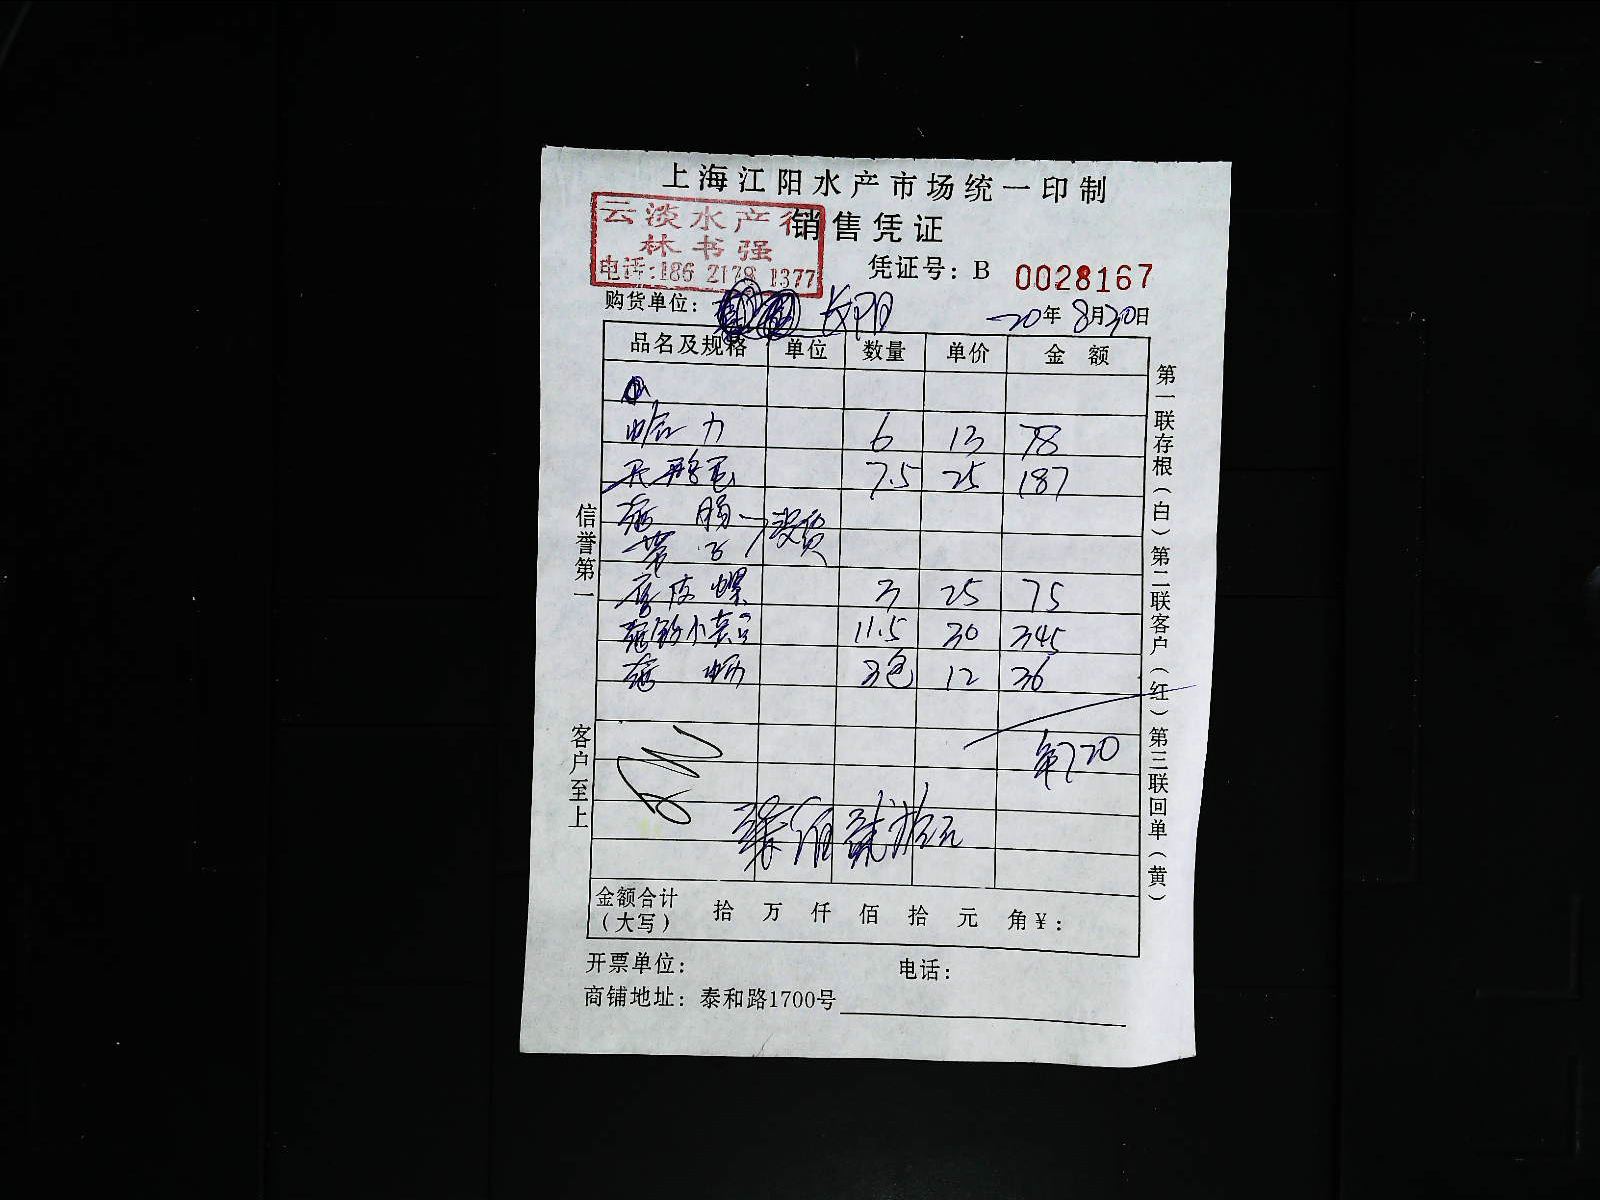 上海江阳水产市场统一印制
云淡水产行
销售凭证
林书强
电话:186 2178 1377
凭证号: B 0028167
购货单位: 长阳
20年8月30日
品名及规格 单位 数量 单价 金额
哈力 6 13 78
7.5 25 187
肠 没货
带子
唐皮螺 3 25 75
11.5 30 345
3包 12 36
720
柒佰贰拾元
金额合计(大写) 拾 万 仟 佰 拾 元 角¥:
开票单位: 电话:
商铺地址: 泰和路1700号
信誉第一
客户至上
第一联存根(白)第二联客户(红)第三联回单(黄)